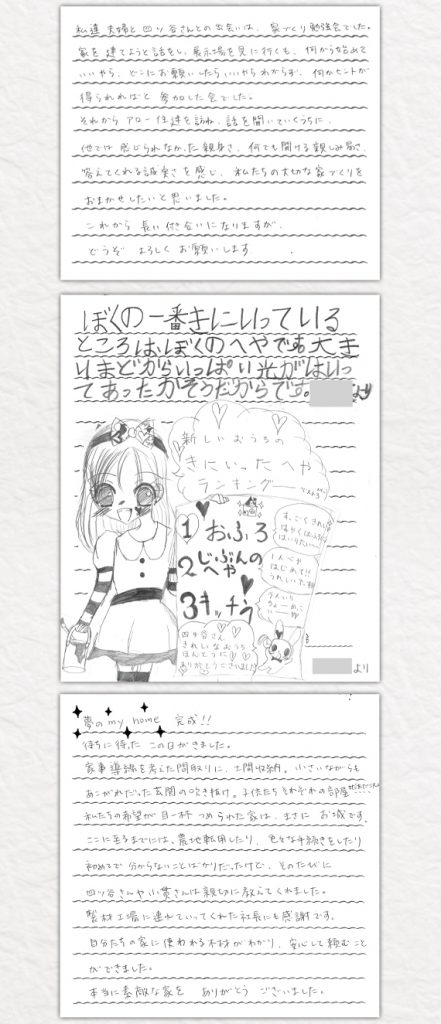 私達夫婦と四ツ谷さんとの出会いは、家づくり勉強会でした。
家を建てようと話をし、展示場を見に行くも、何から始めて
いいやら、どこにお願いしたらいいやらわからず、何かヒントが
得られればと参加した会でした。
それからアロー住建を訪ね、話を聞いていくうちに、
他では感じられなかった親身さ、何でも聞ける親しみ易さ、
答えてくれる誠実さを感じ、私たちの大切な家づくりを
おまかせしたいと思いました。
これから長い付き合いになりますが、
どうぞよろしくお願いします
ぼくの一番きにいっている
ところは、ぼくのへやです。大き
いまどからいっぱい光がはいっ
てあったかそうだからです。
より
新しいおうちの
きにいったへや
ランキングー
ベスト3
1 おふろ
2 じぶんのへや
3 キッチン
すっごくきれい
はやくおふろ
はいりたいー
はじめて!!
うれしいな
四ツ谷さん
きれいなおうち
ほんとうに
ありがとうございました
より
夢のmy home 完成!!
待ちに待ったこの日がきました。
家事導線を考えた間取りに、土間収納。小さいながらも
あこがれだった玄関の吹き抜け。子供たちそれぞれの部屋
私たちの希望が目一杯つめられた家は、まさにお城です。
ここに至るまでには、農地転用したり、色々な手続きをしたり
初めてで分からないことばかりだったけど、そのたびに
四ツ谷さんや小貫さんは親切に教えてくれました。
製材工場に連れていってくれた社長にも感謝です。
自分たちの家に使われる木材がわかり、安心して頼むこと
ができました。
本当に素敵な家をありがとうございました。